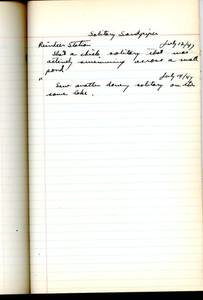 Solitary Sandpiper
Reindeer Station July 12/47
Shot a chick solitary that was
actively swimming across a small
pond.
" July 14/47
Saw another downy solitary on the
same lake.